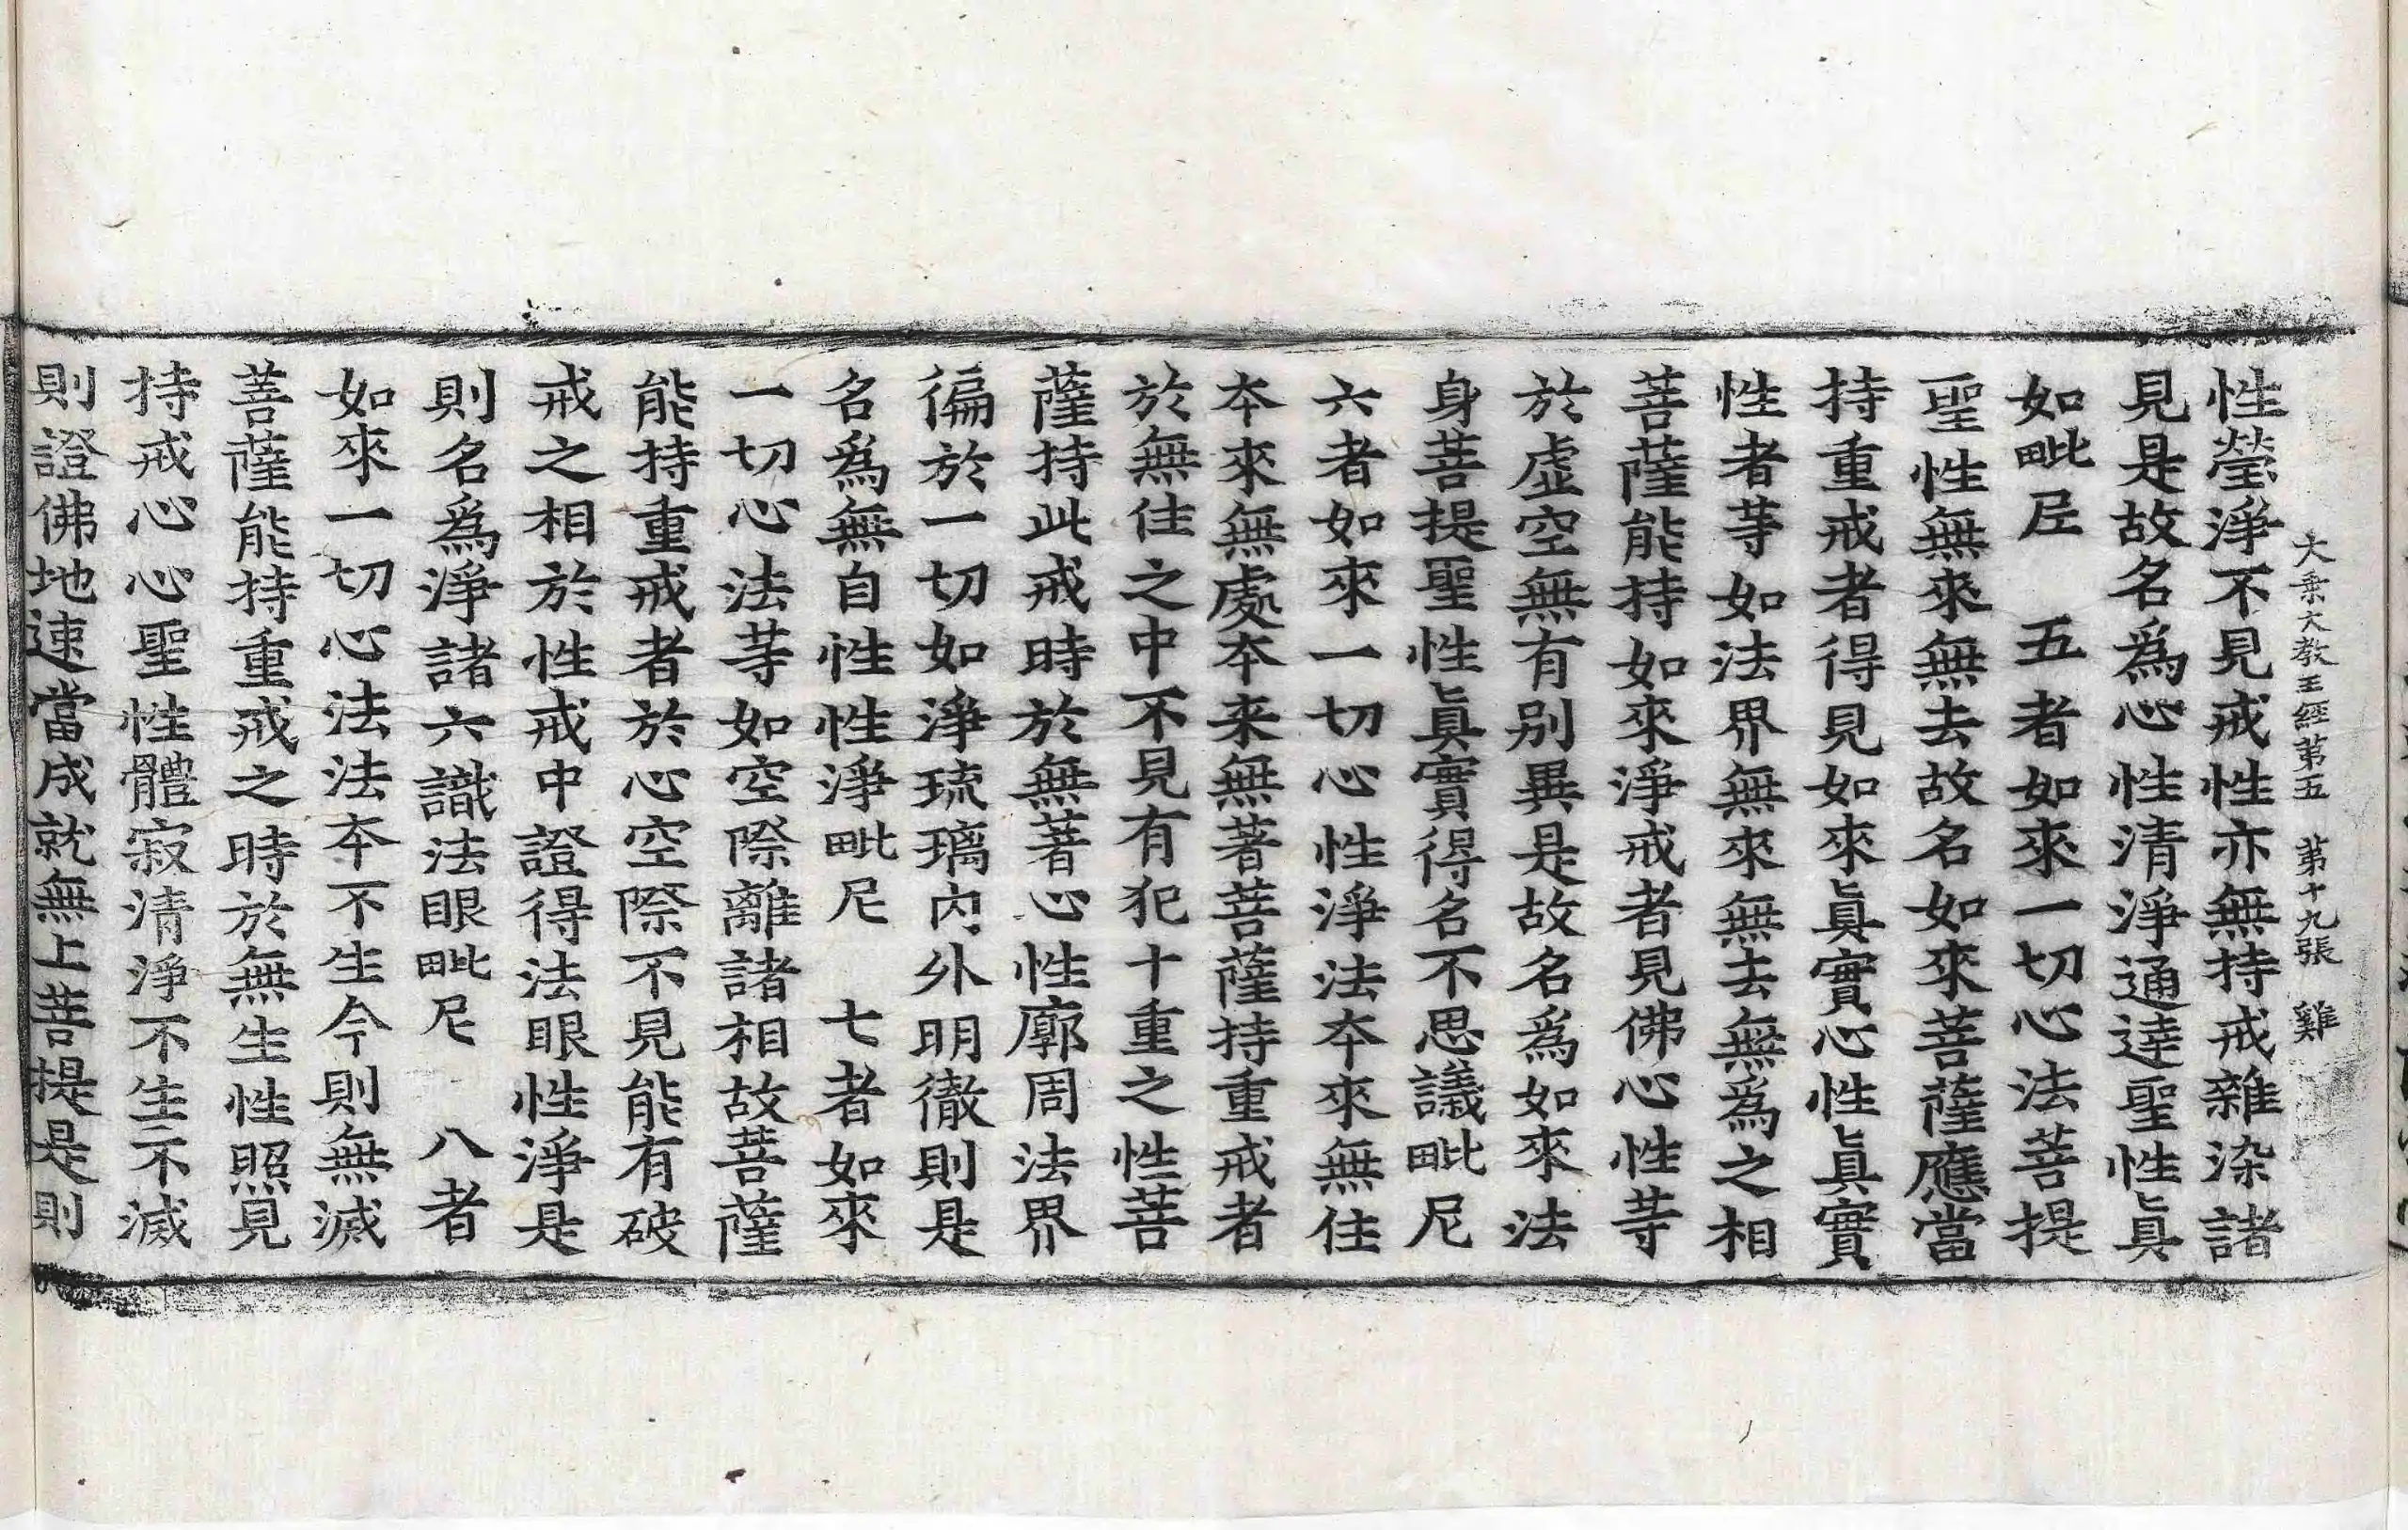 大乗大教王經第五　第十九張　雞
性瑩淨不見戒性亦無持戒雜染諸
見是故名爲心性清淨通達聖性眞
如毗尼　五者如來一切心法菩提
聖性無來無去故名如來菩薩應當
持重戒者得見如來眞實心性眞實
性者䓁如法界無來無去無爲之相
菩薩能持如來淨戒者見佛心性䓁
於虛空無有别異是故名爲如來法
身菩提聖性眞實得名不思議毗尼
六者如來一切心性淨法夲來無住
夲來無處夲来無著菩薩持重戒者
於無住之中不見有犯十重之性菩
薩持此戒時於無著心性廓周法界
徧於一切如淨琉璃內外明徹則是
名爲無自性性淨毗尼　七者如來
一切心法䓁如空際離諸相故菩薩
能持重戒者於心空際不見能有破
戒之相於性戒中證得法眼性淨是
則名爲淨諸六識法眼毗尼　八者
如來一切心法法夲不生今則無滅
菩薩能持重戒之時於無生性照見
持戒心心聖性體寂清淨不生不滅
則證佛地速當成就無上菩提是則